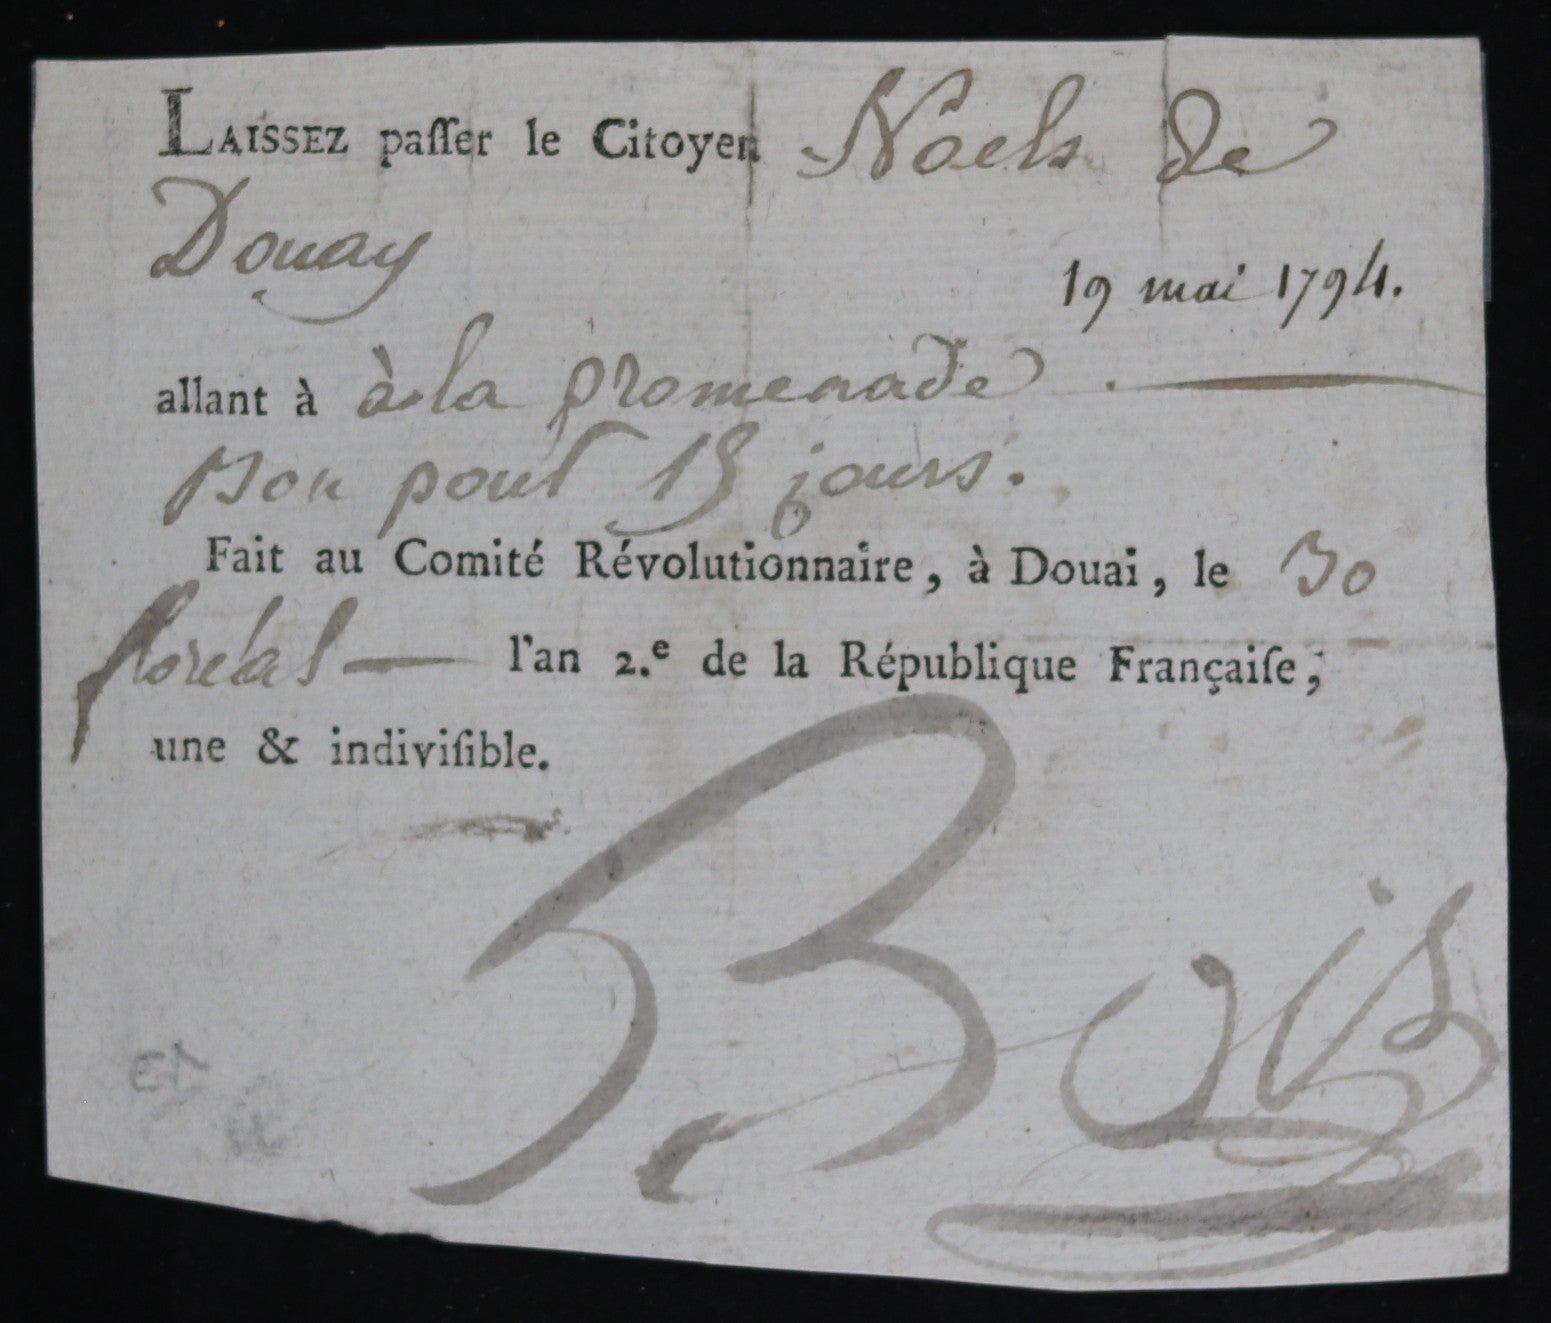 LAISSEZ paſſer le Citoyen Noels de
Douay
19 mai 1794.
allant à à la promenade
Bon pour 15 jours.
Fait au Comité Révolutionnaire, à Douai, le 30
floréal l'an 2.e de la République Françaiſe,
une & indiviſible.
Bois